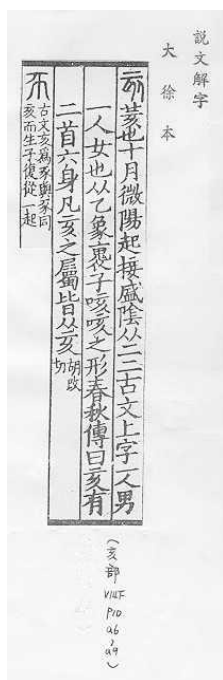 説文解字
大徐本
亥荄也十月微陽起接盛陰从二二古文上字一人男
一人女也从乙象褱子咳咳之形春秋傳曰亥有
二首六身凡亥之屬皆从亥胡改切
古文亥爲豕與豕同
亥而生子復從一起
(亥部
P10
a6
a9)